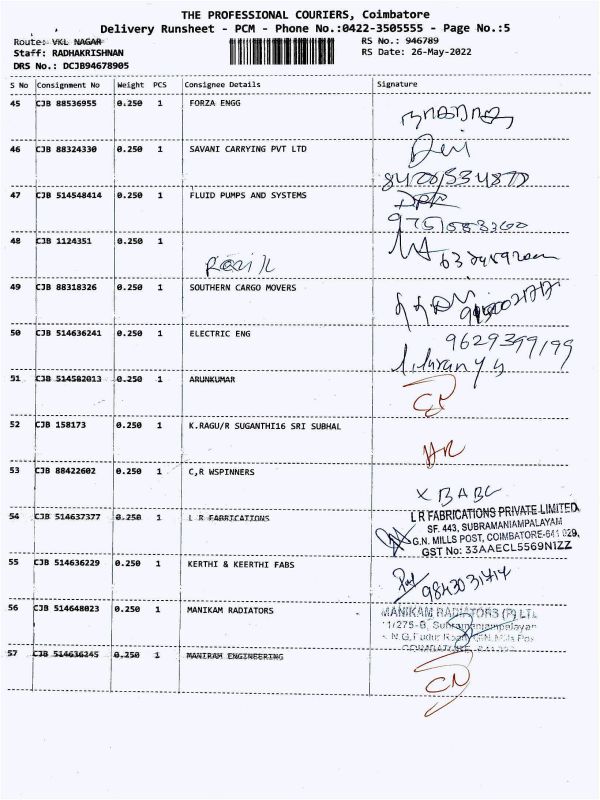 THE PROFESSIONAL COURIERS, Coimbatore
Delivery Runsheet - PCM - Phone No.:0422-3505555 - Page No.:5
Route: VKL NAGAR RS No.: 946789
Staff: RADHAKRISHNAN RS Date: 26-May-2022
DRS No.: DCJB94678905
S No Consignment No Weight PCS Consignee Details Signature
45 CJB 88536955 0.250 1 FORZA ENGG
46 CJB 88324330 0.250 1 SAVANI CARRYING PVT LTD
47 CJB 514548414 0.250 1 FLUID PUMPS AND SYSTEMS
48 CJB 1124351 0.250 1
49 CJB 88318326 0.250 1 SOUTHERN CARGO MOVERS
50 CJB 514636241 0.250 1 ELECTRIC ENG
9629399199
51 CJB 514582013 0.250 1 ARUNKUMAR
52 CJB 158173 0.250 1 K.RAGU/R SUGANTHI16 SRI SUBHAL
53 CJB 88422602 0.250 1 C,R WSPINNERS
X BABU
54 CJB 514637377 0.250 1 L R FABRICATIONS
L R FABRICATIONS PRIVATE LIMITED
SF. 443, SUBRAMANIAMPALAYAM
G.N. MILLS POST, COIMBATORE-641 029.
GST No: 33AAECL5569N1ZZ
55 CJB 514636229 0.250 1 KERTHI & KEERTHI FABS
56 CJB 514648023 0.250 1 MANIKAM RADIATORS
MANIKAM RADIATORS (P) LTD
11/275-B, Subramaniampalayam
57 CJB 514636245 0.250 1 MANIRAM ENGINEERING